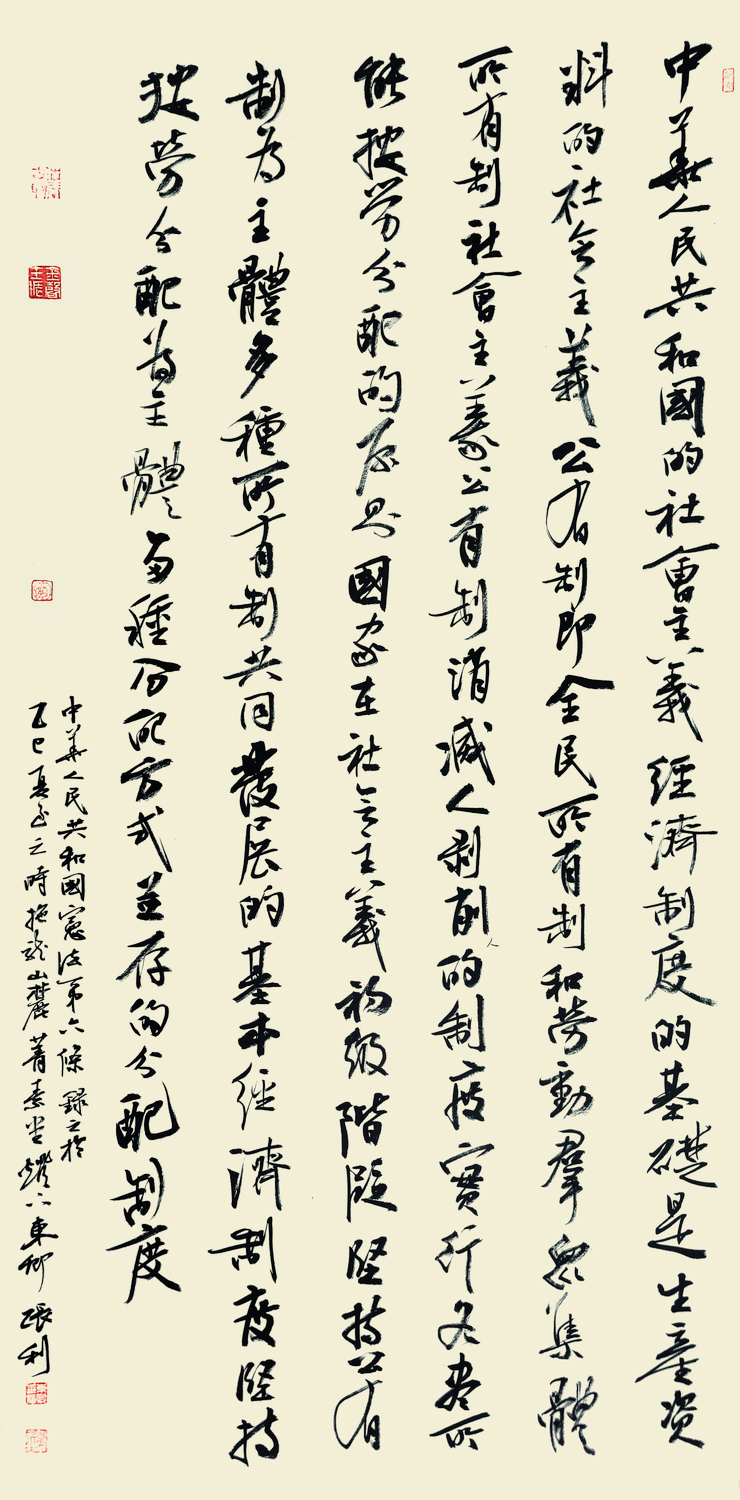 中華人民共和國的社會主義經濟制度的基礎是生產資
料的社会主義公有制即全民所有制和勞動羣衆集體
所有制社會主義公有制消滅人剥削人的制度實行各盡所
能按勞分配的原則國家在社会主義初級階段堅持公有
制為主體多種所有制共同發展的基本經濟制度堅持
按勞分配為主體多種分配方式並存的分配制度
中華人民共和國憲法第六條 録之於
乙巳夏至之時拖龍山麓菁素堂燈下東卿 張利